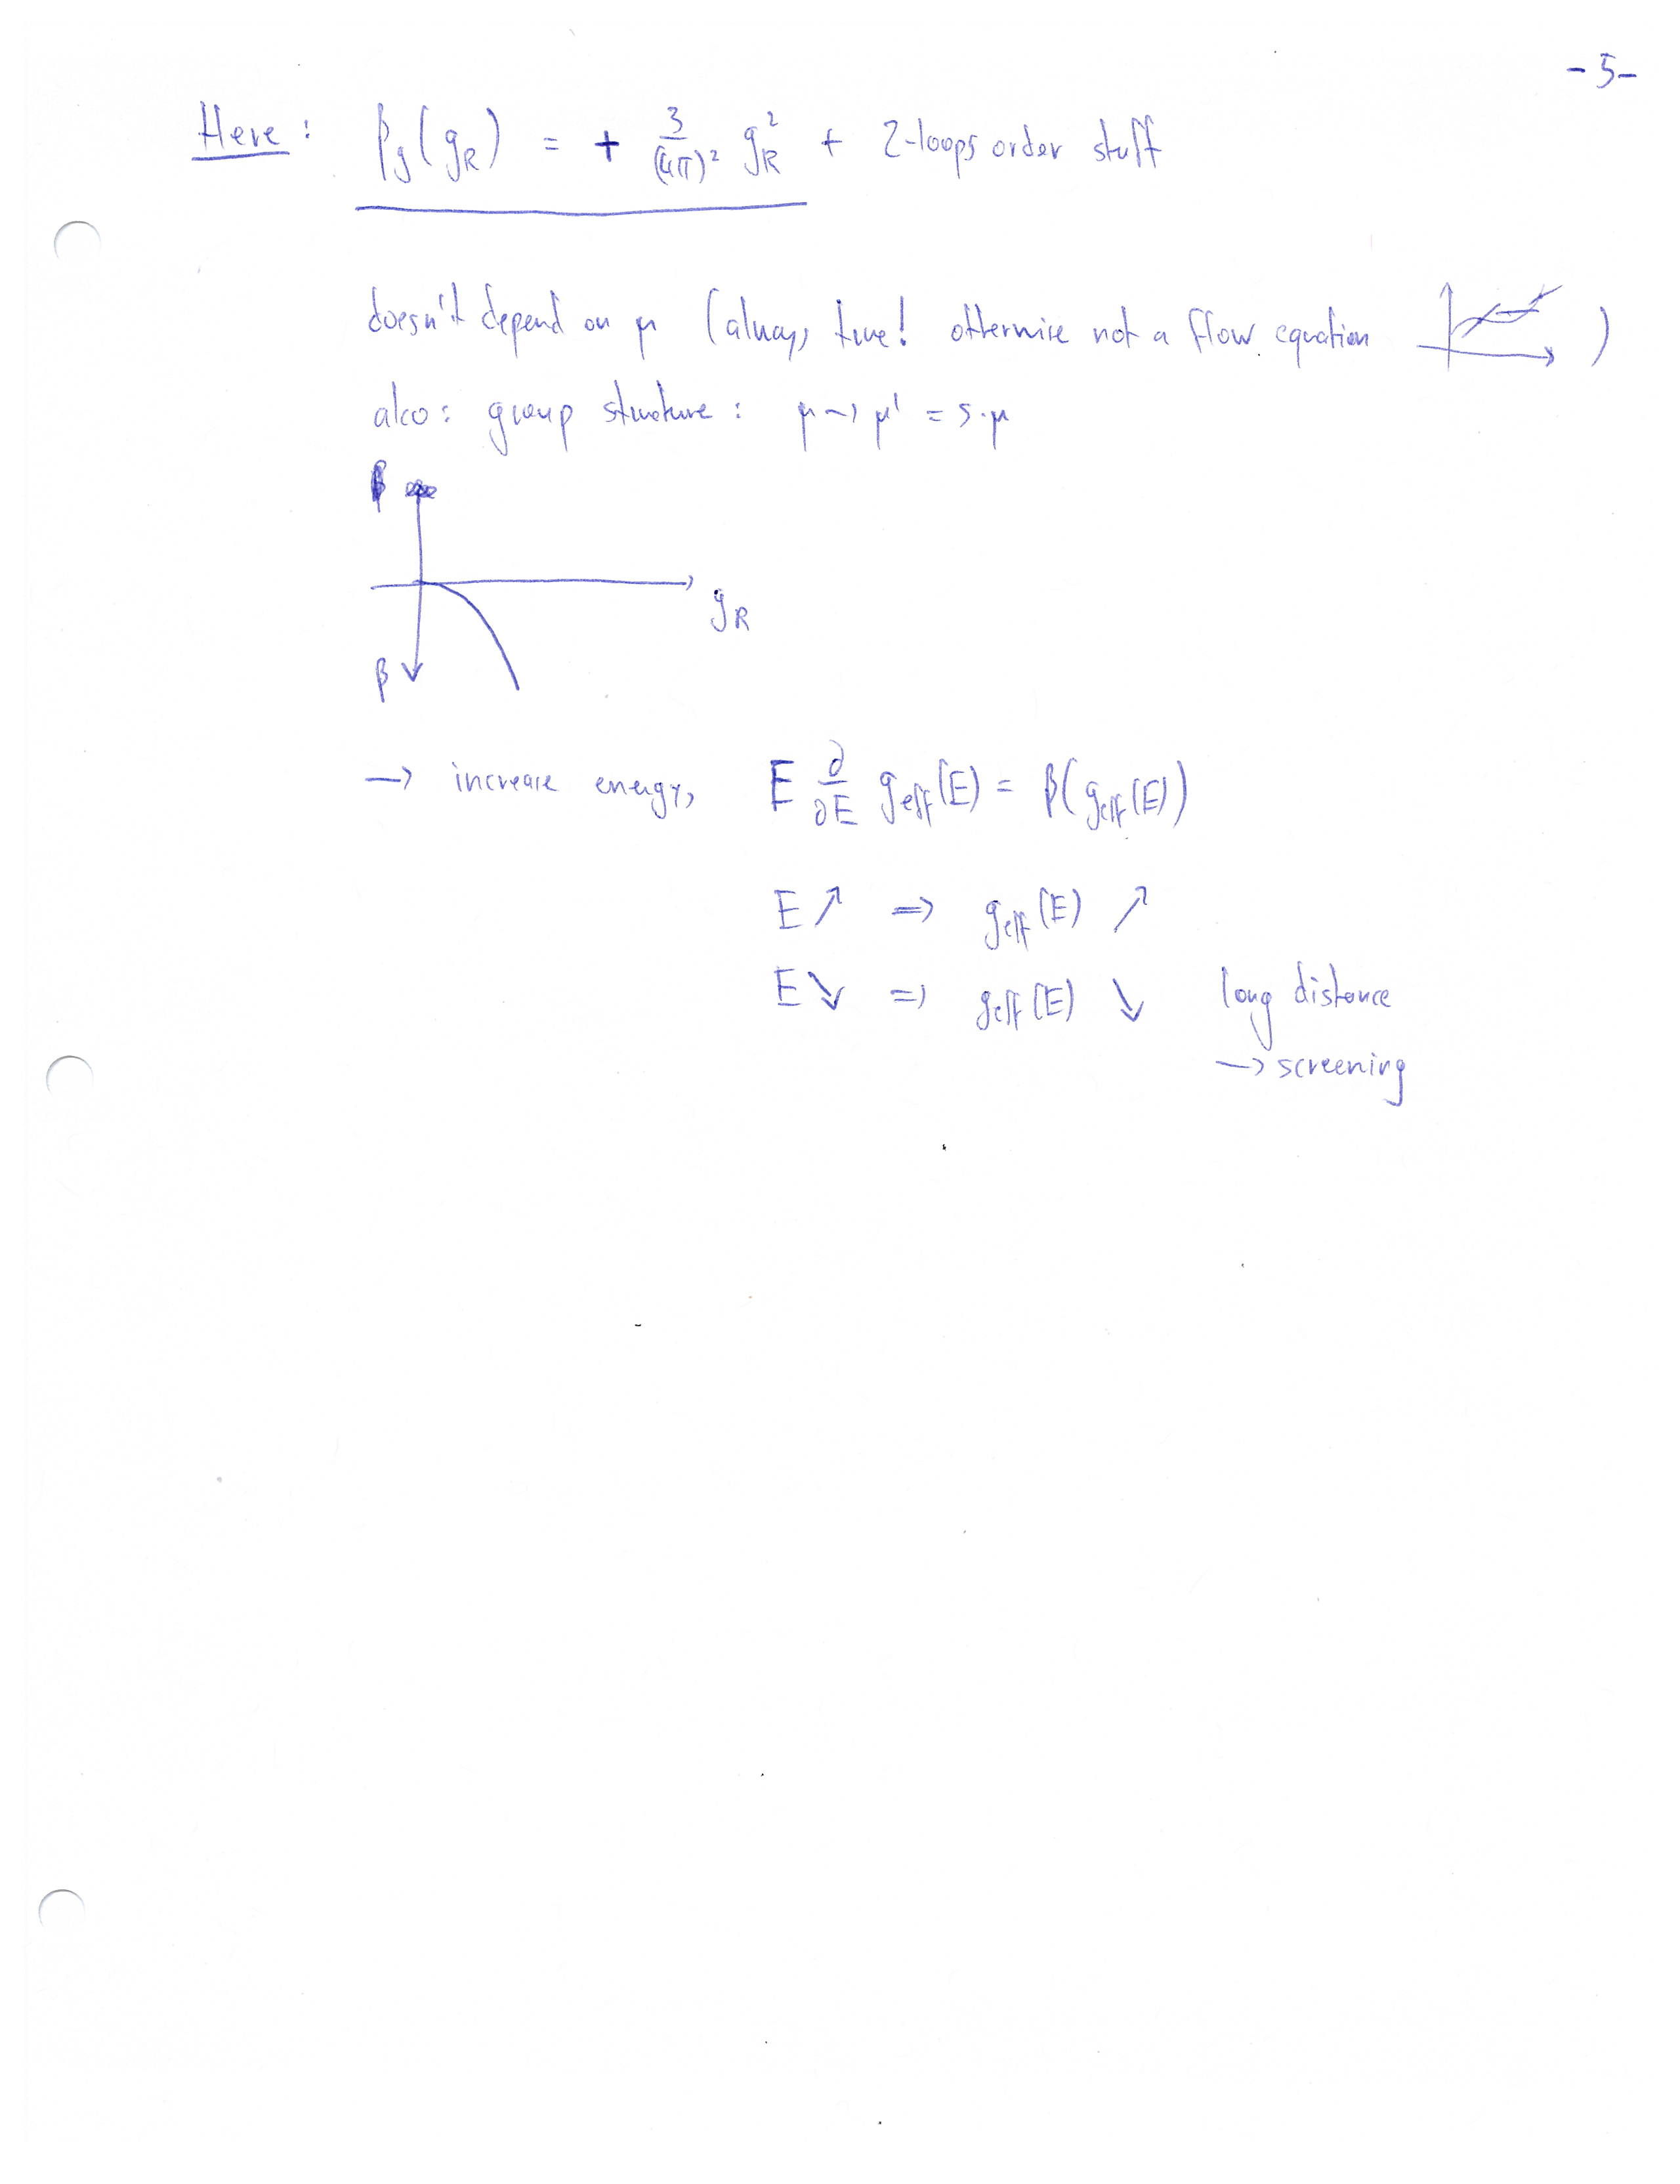 -5-
Here: β_g(g_R) = + 3/(4π)² g_R² + 2-loops order stuff
doesn't depend on μ (always true! otherwise not a flow equation )
also: group structure: μ → μ' = s·μ
β
g_R
β
→ increase energy, E ∂/∂E g_eff(E) = β(g_eff(E))
E ↗ ⇒ g_eff(E) ↗
E ↘ ⇒ g_eff(E) ↘ long distance
→ screening